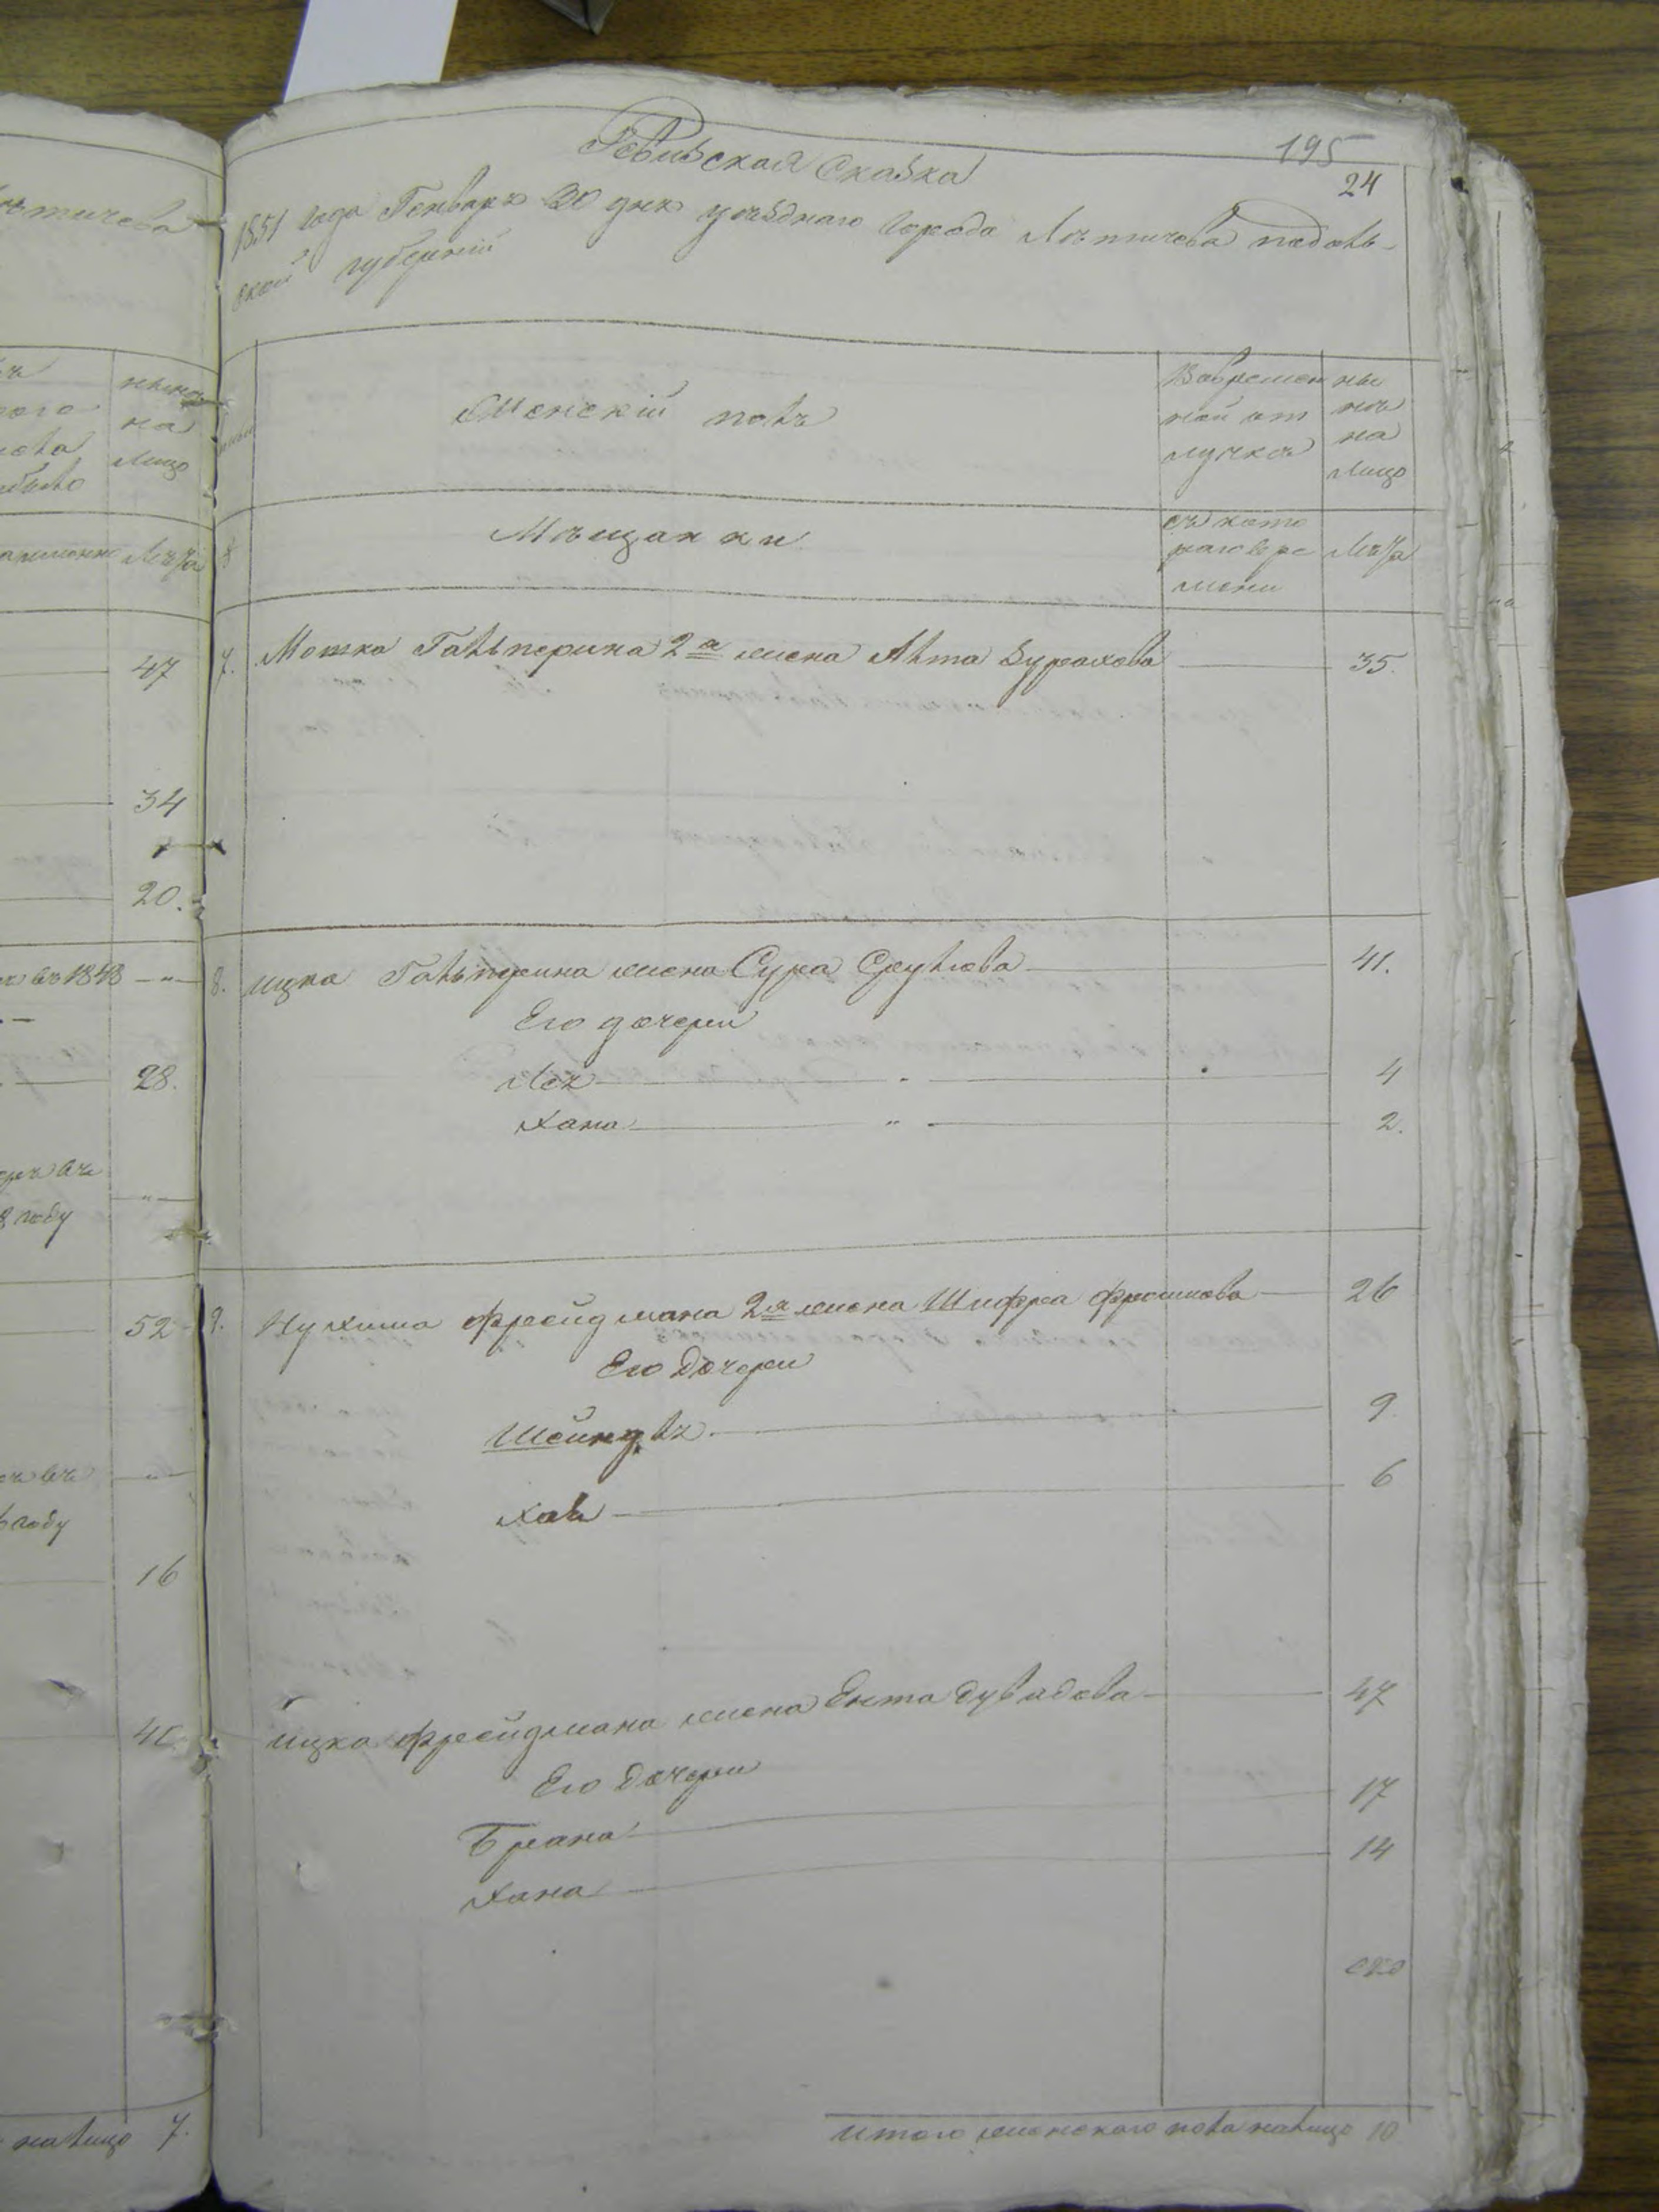 Ревизская Сказка
195
24
1851 года Генваря 30 дня уѣзднаго города Лѣтичева подоль-
ской губерніи
Женскій полъ
Вовремен
ной от
лучкѣ
ны
нѣ
на
лицо
Мѣщанки
съ кото
раго вре
мени
Лѣта
7. Мошка Гальперина 2я жена Алта Зурахова 35.
8. ицка Гальперина жена Сура Срулева 41.
Его дочери
Лея 4
Хана 2.
9. Нухима Фрейдмана 2я жена Шифра Фроимова 26
Его Дочери
Шейндля 9.
Хая 6
ицка Фрейдмана жена Ента Дувидова 47
Его Дочери
Брана 17
Хана 14
итого женского пола налицо 10
47
34
20.
въ 1848
28.
году
52
году
16
налицо 7.